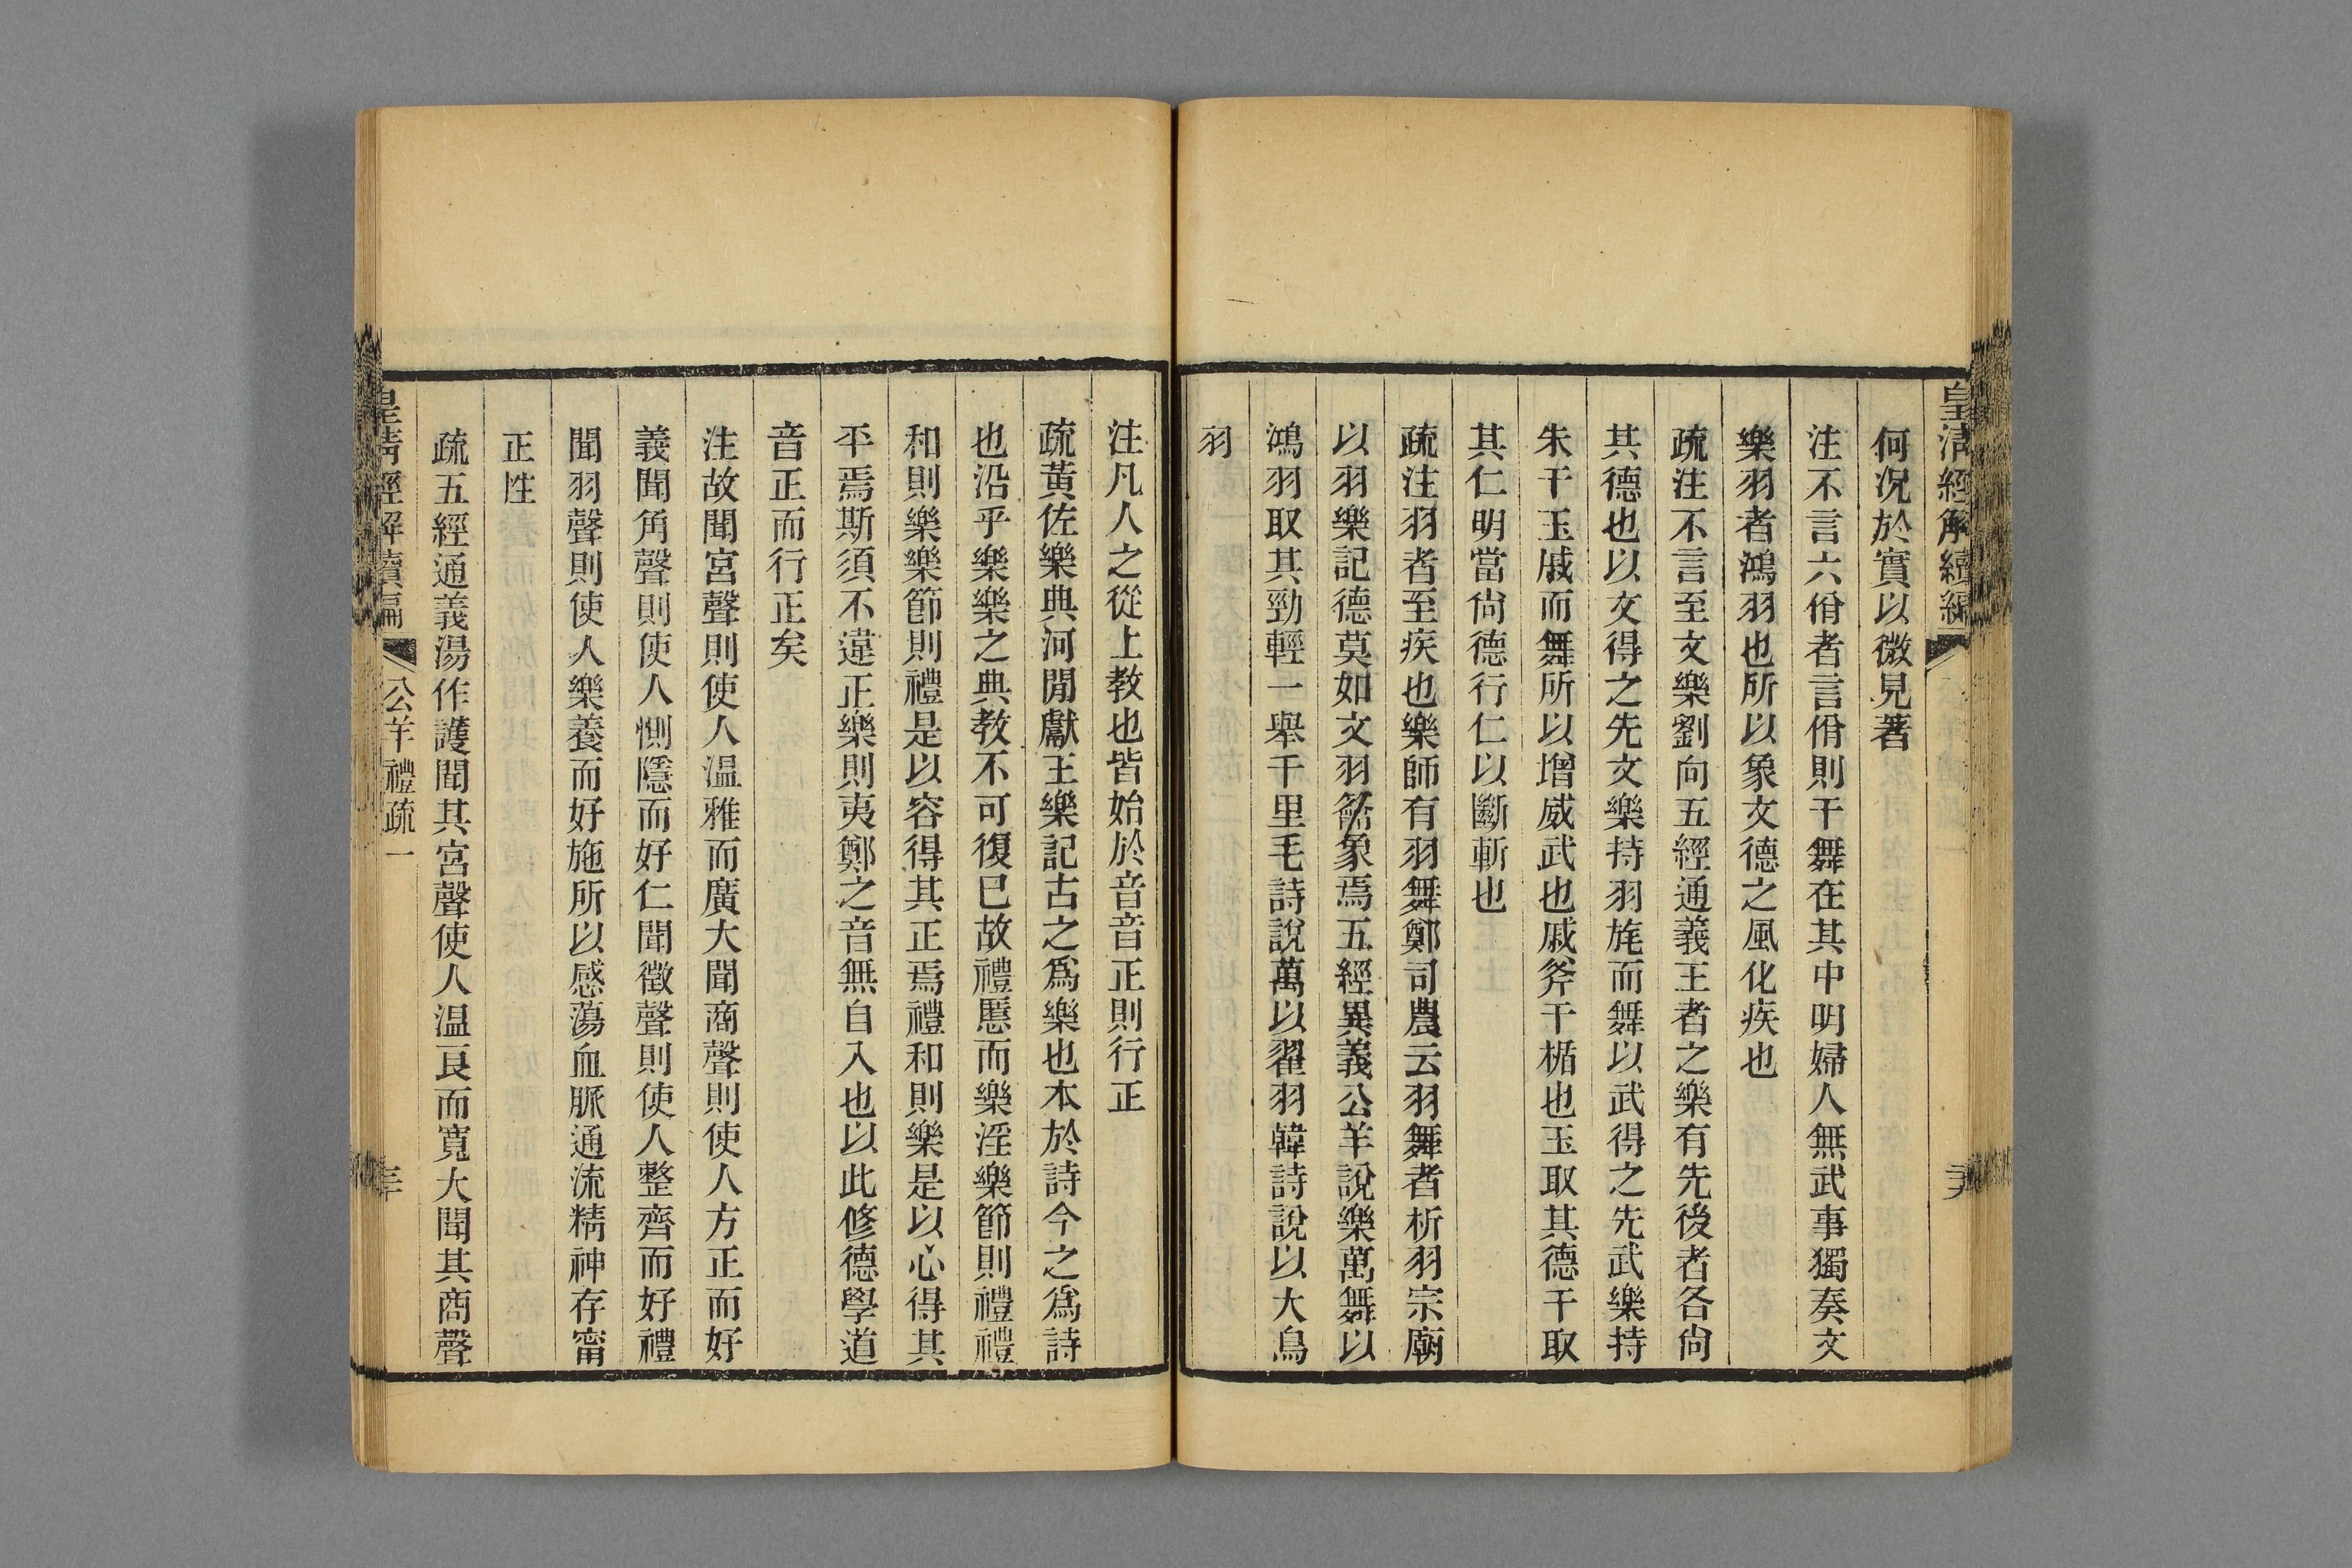 皇清經解續編
何況於實以微見著
注不言六佾者言佾則干舞在其中明婦人無武事獨奏文
樂羽者鴻羽也所以象文德之風化疾也
疏注不言至文樂劉向五經通義王者之樂有先後者各尙
其德也以文得之先文樂持羽旄而舞以武得之先武樂持
朱干玉戚而舞所以增威武也戚斧干楯也玉取其德干取
其仁明當尙德行仁以斷斬也
疏注羽者至疾也樂師有羽舞鄭司農云羽舞者析羽宗廟
以羽樂記德莫如文羽籥象焉五經異義公羊說樂萬舞以
鴻羽取其勁輕一舉千里毛詩說萬以翟羽韓詩說以大鳥
羽
注凡人之從上教也皆始於音音正則行正
疏黃佐樂典河閒獻王樂記古之爲樂也本於詩今之爲詩
也沿乎樂樂之典教不可復巳故禮慝而樂淫樂節則禮禮
和則樂樂節則禮是以容得其正焉禮和則樂是以心得其
平焉斯須不違正樂則夷鄭之音無自入也以此修德學道
音正而行正矣
注故聞宮聲則使人温雅而廣大聞商聲則使人方正而好
義聞角聲則使人惻隱而好仁聞徵聲則使人整齊而好禮
聞羽聲則使人樂養而好施所以感蕩血脈通流精神存甯
正性
疏五經通義湯作護聞其宮聲使人温良而寬大聞其商聲
皇清經解續編 公羊禮疏一